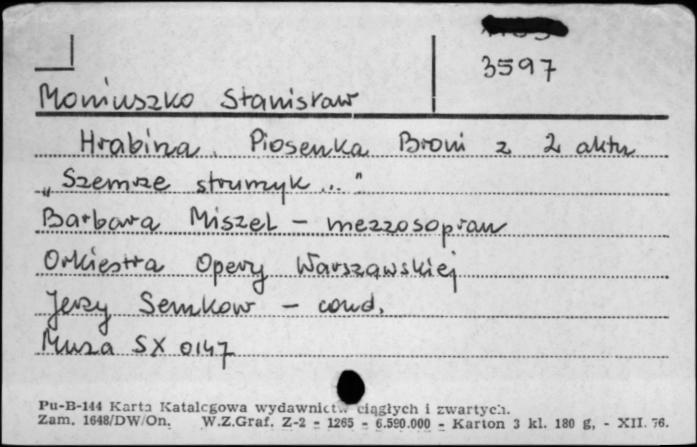 3597
Moniuszko Stanisław
Hrabina. Piosenka Broni z 2 aktu
„Szemrze strumyk..."
Barbara Miszel – mezzosopran
Orkiestra Opery Warszawskiej
Jerzy Semkow – cond.
Muza SX 0147
Pu-B-144 Karta Katalogowa wydawnictw ciągłych i zwartych.
Zam. 1648/DW/On. W.Z.Graf. Z-2 - 1265 - 6.590.000 - Karton 3 kl. 180 g, - XII. 76.